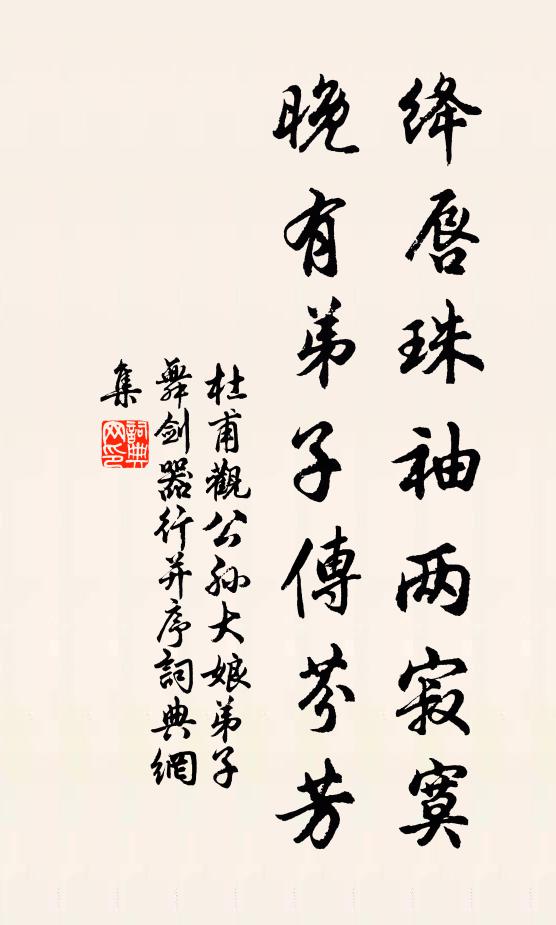 绛唇珠袖两寂寞
晚有弟子傳芬芳
杜甫觀公孙大娘弟子
舞剑器行并序詞典網
集
詞典
网印